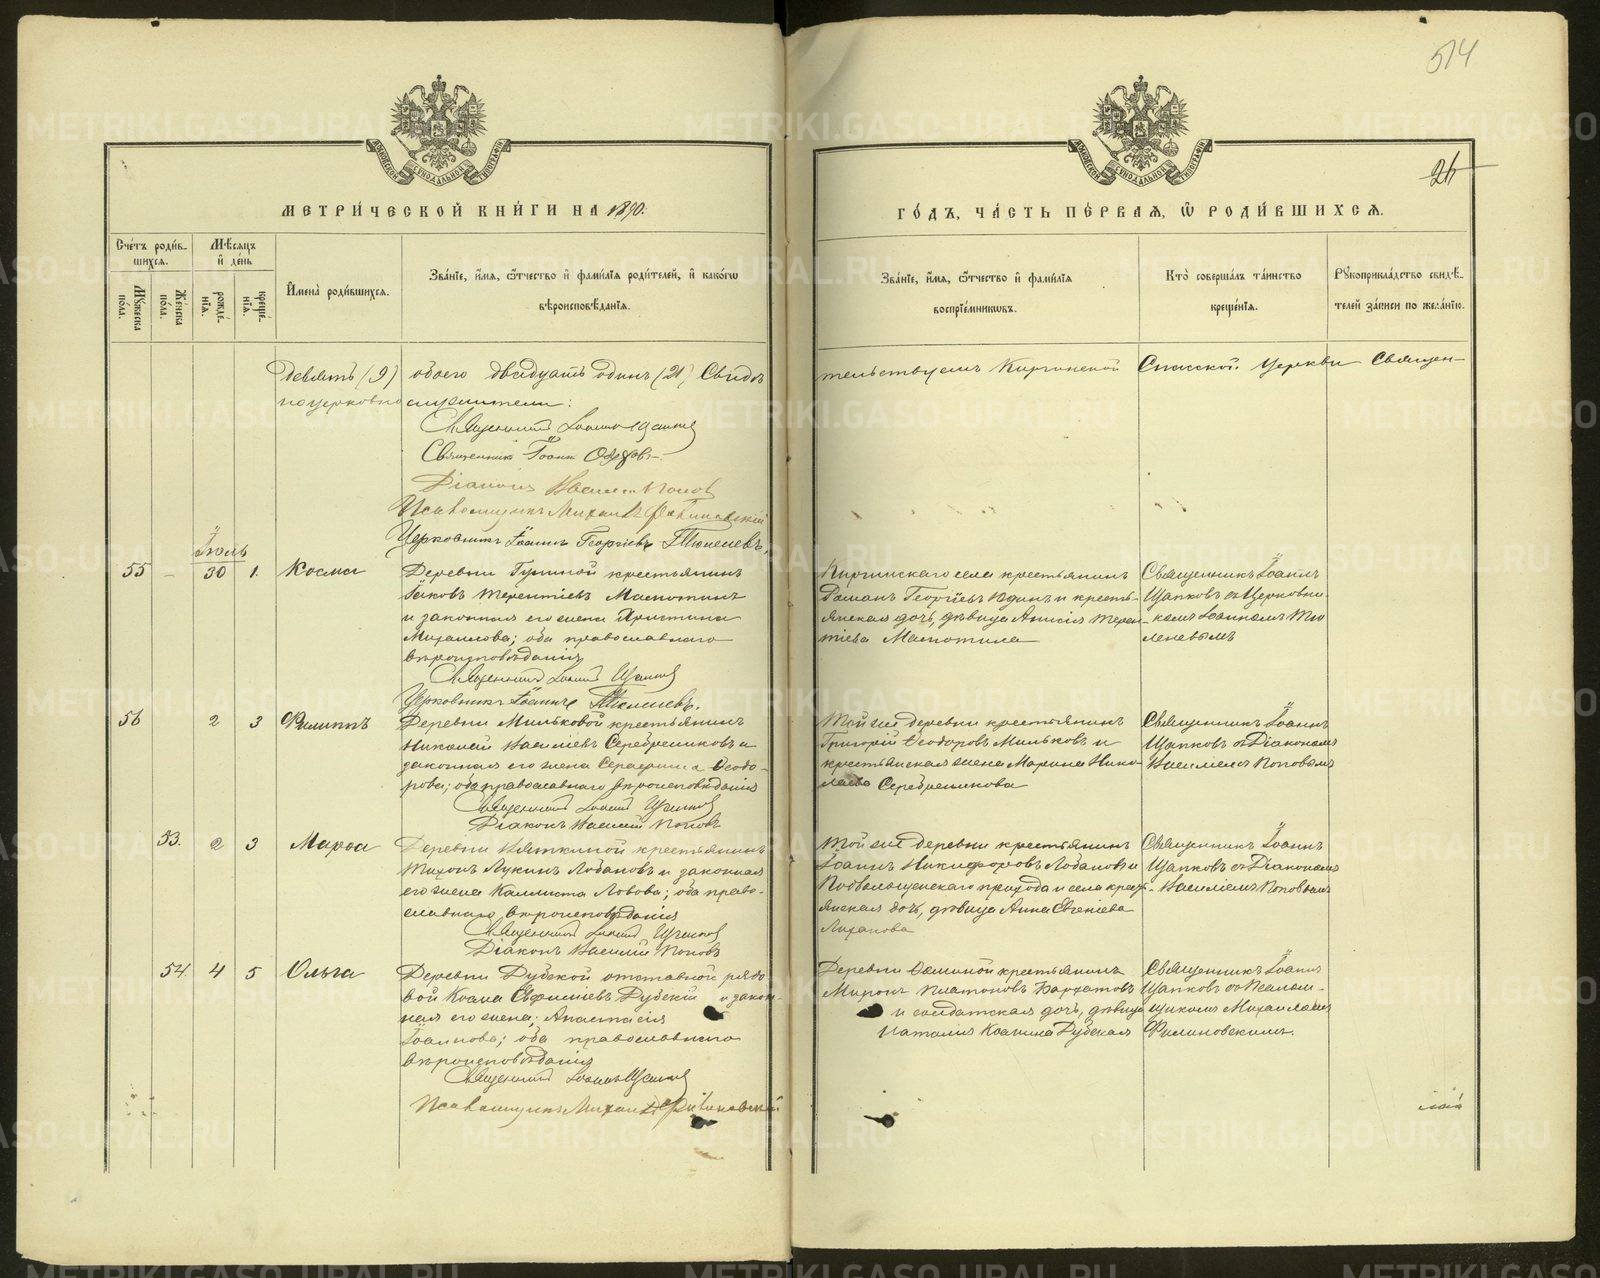 514
26
МОСКОВСКОЙ СѴНОДАЛЬНОЙ ТИПОГРАФІИ
МОСКОВСКОЙ СѴНОДАЛЬНОЙ ТИПОГРАФІИ
МЕТРИ́ЧЕСКОЙ КНИ́ГИ НА 1890.
ГО́ДЪ, ЧА́СТЬ ПЕ́РВАЯ, Ѡ҆ РОДИ́ВШИХСЯ.
Сче́тъ роди́в-
шихся.
Мꙋ́жеска по́ла.
Же́нска по́ла.
Мѣ́сяцъ
и҆ де́нь
рожде́-
нїя.
креще́-
нїя.
И҆мена̀ роди́вшихся.
Зва́нїе, и҆́мя, ѻ҆́тчество и҆ фами́лїя роди́телей, и҆ како́гѡ
вѣроисповѣ́данїя.
Зва́нїе, и҆́мя, ѻ҆́тчество и҆ фами́лїя
воспрїе́мникѡвъ.
Кто̀ соверша́лъ та́инство
креще́нїя.
Рꙋкоприкла́дство свидѣ́-
телей за́писи по жела́нїю.
девять (9) обоего двадцать одинъ (21) Свидѣ-
тельствуемъ Киргинской Спасской церкви Священ-
ноцерковнослужители:
Священникъ Іоаннъ Щапковъ
Священникъ Іоаннъ
Діаконъ Василій Поповъ
Псаломщикъ Михаилъ Филиновскій
Церковникъ Іоаннъ Георгіевъ Тюленевъ.
Іюль
55 – 30 1. Косма
Деревни Гуниной крестьянинъ
Іаковъ Терентіевъ Мамотинъ
и законная его жена Христина
Михаилова; оба православнаго
вѣроисповѣданія
Священникъ Іоаннъ Щапковъ
Церковникъ Іоаннъ Тюленевъ.
Киргинскаго села крестьянинъ
Романъ Георгіевъ Юдинъ и кресть-
янская дочь, дѣвица Анисія Терен-
тіева Мамотина
Священникъ Іоаннъ
Щапковъ съ Церковни-
комъ Іоанномъ Тю-
леневымъ
56 2 3 Филиппъ
Деревни Мильковой крестьянинъ
Николай Василіевъ Серебренниковъ и
законная его жена Серафима Ѳеодо-
рова; оба православнаго вѣроисповѣданія
Священникъ Іоаннъ Щапковъ
Діаконъ Василій Поповъ
Той же деревни крестьянинъ
Григорій Ѳеодоровъ Мильковъ и
крестьянская жена Марина Нико-
лаева Серебренникова
Священникъ Іоаннъ
Щапковъ съ Діакономъ
Василіемъ Поповымъ
53. 2 3 Марѳа
Деревни Вяткиной крестьянинъ
Тихонъ Лукинъ Лобановъ и законная
его жена Каллиста Львова; оба право-
славнаго вѣроисповѣданія
Священникъ Іоаннъ Щапковъ
Діаконъ Василій Поповъ
Той же деревни крестьянинъ
Іоаннъ Никифоровъ Лобановъ и
прихода и села крест-
янская дочь, дѣвица Анна Евгеніева
Священникъ Іоаннъ
Щапковъ съ Діакономъ
Василіемъ Поповымъ
54. 4 5 Ольга
Деревни Дубской отставной рядо-
вой Козма Евфиміевъ Дубскій и закон-
ная его жена; Анастасія
Іоаннова; оба православнаго
вѣроисповѣданія
Священникъ Іоаннъ Щапковъ
Псаломщикъ Михаилъ Филиновскій
Деревни крестьянинъ
Миронъ Платоновъ
и солдатская дочь, дѣвица
Наталія Козмина Дубская
Священникъ Іоаннъ
Щапковъ съ Псалом-
щикомъ Михаиломъ
Филиновскимъ.
METRIKI.GASO-URAL.RU